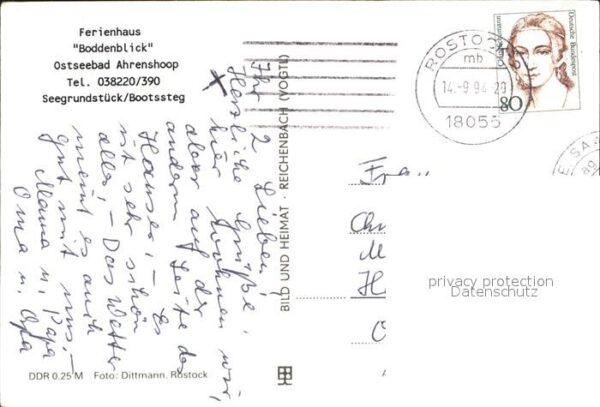 Ferienhaus
"Boddenblick"
Ostseebad Ahrenshoop
Tel. 038220/390
Seegrundstück/Bootssteg
Ihr
2 Lieben,
Herzliche Grüße,
hier wohnen wir,
aber auf der
anderen Seite des
Hauses, – Es
ist sehr schön
alles, – Das Wetter
meint es auch
gut mit uns, –
Mama u. Papa
Oma u. Opa
DDR 0.25 M Foto: Dittmann, Rostock
BILD UND HEIMAT · REICHENBACH (VOGTL)
ROSTOCK
mb
14.-9.94-20
18055
Deutsche Bundespost
80
Frau
privacy protection
Datenschutz